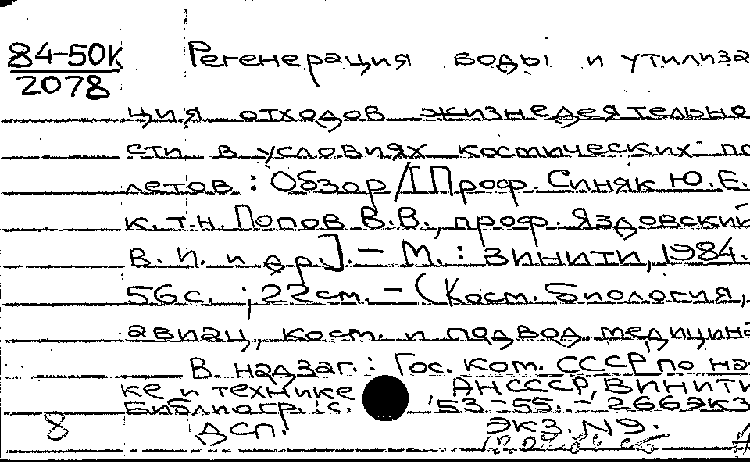 84-50К Регенерация воды и утилиза
2078
ция отходов жизнедеятельно
сти в условиях космических по
летов: Обзор/[Проф. Синяк Ю.Е.
к.т.н. Попов В.В., проф. Яздовский
В.И. и др.]. - М.: ВИНИТИ, 1984.
56с.; 22см. - (Косм. биология,
авиац., косм. и подвод. медицина
В надзаг.: Гос. ком. СССР по на
ке и технике АНСССР, ВИНИТИ
Библиогр.: с. 53-55. - 266экз
8 ДСП! Экз. №9.